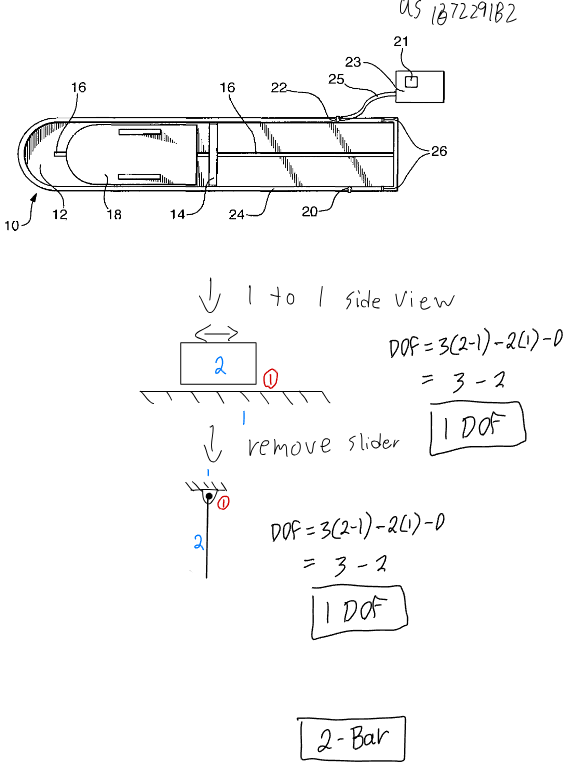 US 10722918B2
21
23
22
25
16
16
26
12
18
14
24
20
10
1 to 1 side view
2
1
1
DOF = 3(2-1)-2(1)-0
= 3-2
1 DOF
remove slider
1
1
2
DOF = 3(2-1)-2(1)-0
= 3-2
1 DOF
2-Bar